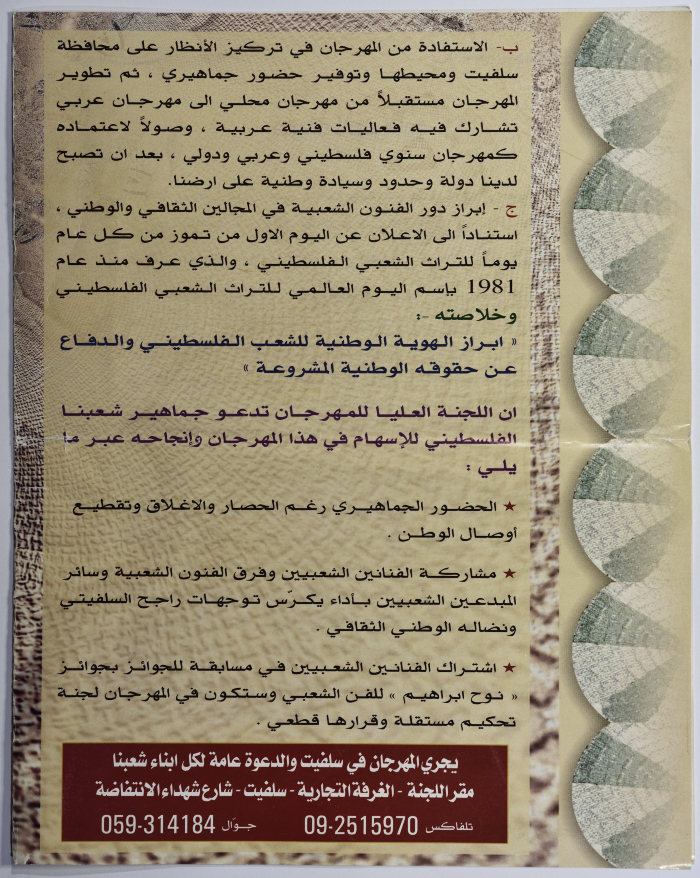 ب- الاستفادة من المهرجان في تركيز الأنظار على محافظة
سلفيت ومحيطها وتوفير حضور جماهيري ، ثم تطوير
المهرجان مستقبلاً من مهرجان محلي الى مهرجان عربي
تشارك فيه فعاليات فنية عربية ، وصولاً لاعتماده
كمهرجان سنوي فلسطيني وعربي ودولي ، بعد ان تصبح
لدينا دولة وحدود وسيادة وطنية على ارضنا.
ج - إبراز دور الفنون الشعبية في المجالين الثقافي والوطني ،
استناداً الى الاعلان عن اليوم الاول من تموز من كل عام
يوماً للتراث الشعبي الفلسطيني ، والذي عرف منذ عام
1981 بإسم اليوم العالمي للتراث الشعبي الفلسطيني
وخلاصته :-
« ابراز الهوية الوطنية للشعب الفلسطيني والدفاع
عن حقوقه الوطنية المشروعة »
ان اللجنة العليا للمهرجان تدعو جماهير شعبنا
الفلسطيني للإسهام في هذا المهرجان وإنجاحه عبر ما
يلي :
★ الحضور الجماهيري رغم الحصار والاغلاق وتقطيع
أوصال الوطن .
★ مشاركة الفنانين الشعبيين وفرق الفنون الشعبية وسائر
المبدعين الشعبيين بأداء يكرّس توجهات راجح السلفيتي
ونضاله الوطني الثقافي .
★ اشتراك الفنانين الشعبيين في مسابقة للجوائز بجوائز
« نوح ابراهيم » للفن الشعبي وستكون في المهرجان لجنة
تحكيم مستقلة وقرارها قطعي .
يجري المهرجان في سلفيت والدعوة عامة لكل ابناء شعبنا
مقر اللجنة - الغرفة التجارية - سلفيت - شارع شهداء الانتفاضة
تلفاكس 09-2515970 جوّال 059-314184